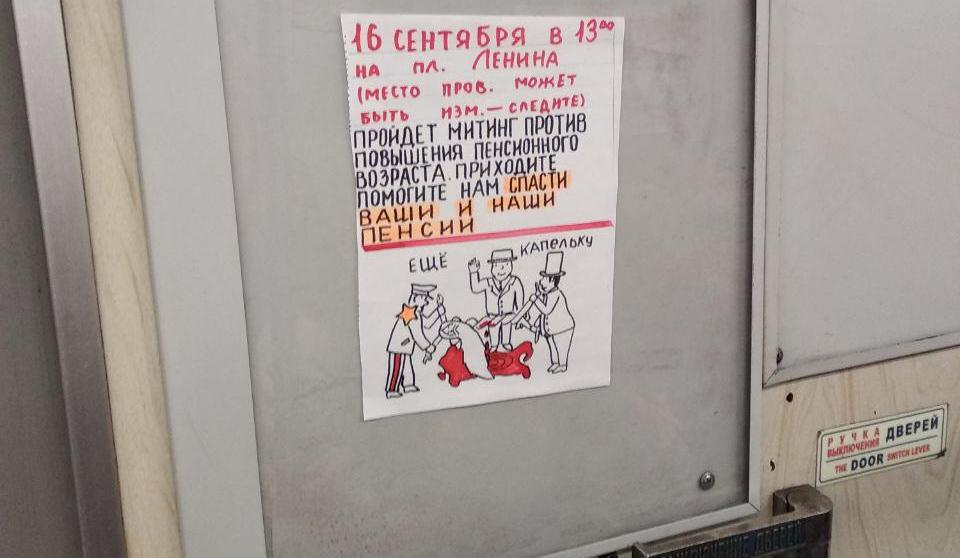 16 СЕНТЯБРЯ В 13⁰⁰
НА ПЛ. ЛЕНИНА
(МЕСТО ПРОВ. МОЖЕТ
БЫТЬ ИЗМ. — СЛЕДИТЕ)
ПРОЙДЕТ МИТИНГ ПРОТИВ
ПОВЫШЕНИЯ ПЕНСИОННОГО
ВОЗРАСТА. ПРИХОДИТЕ
ПОМОГИТЕ НАМ СПАСТИ
ВАШИ И НАШИ
ПЕНСИИ
ЕЩЁ КАПЕЛЬКУ
РУЧКА
ВЫКЛЮЧЕНИЯ ДВЕРЕЙ
THE DOOR SWITCH LEVER
ДВЕРЕЙ